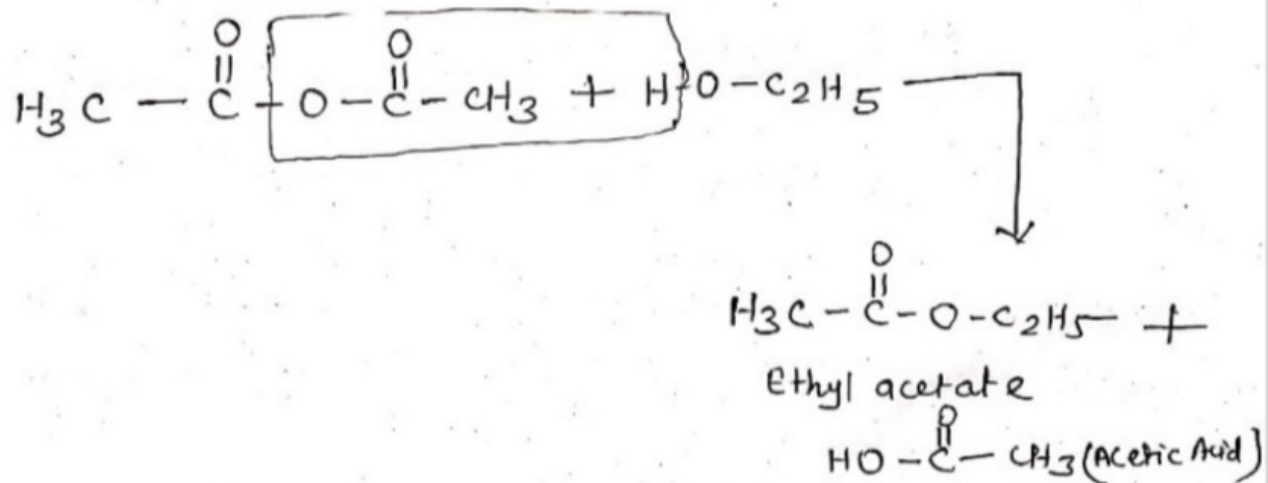 O O
H3C - C - O - C - CH3 + H O - C2H5
O
H3C - C - O - C2H5 +
Ethyl acetate
O
HO - C - CH3 (Acetic Acid)